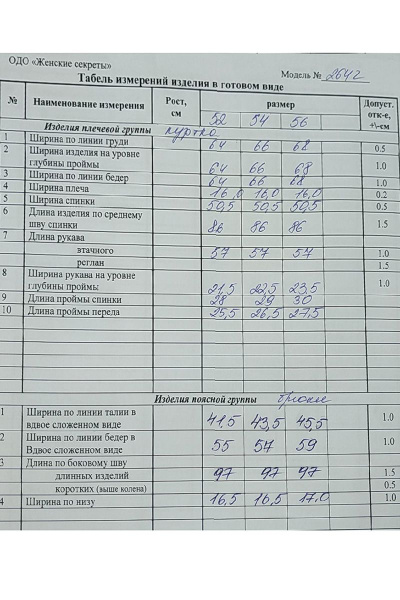 ОДО «Женские секреты»
Модель № 2642
Табель измерений изделия в готовом виде
№ Наименование измерения Рост, см размер Допуст. отк-е, +\-см
52 54 56
Изделия плечевой группы куртка
1 Ширина по линии груди 64 66 68 0.5
2 Ширина изделия на уровне
глубины проймы 64 66 68 1.0
3 Ширина по линии бедер 64 66 68 1.0
4 Ширина плеча 16,0 16,0 16,0 0.2
5 Ширина спинки 50,5 50,5 50,5 0.5
6 Длина изделия по среднему
шву спинки 86 86 86 1.5
7 Длина рукава
втачного 57 57 57 1.0
реглан 1.5
8 Ширина рукана на уровне
глубины проймы 21,5 22,5 23,5 1.0
9 Длина проймы спинки 28 29 30
10 Длина проймы переда 25,5 26,5 27,5
Изделия поясной группы брюки
1 Ширина по линии талии в
вдвое сложенном виде 41,5 43,5 45,5 1.0
2 Ширина по линии бедер в
Вдвое сложенном виде 55 57 59 1.0
3 Длина по боковому шву
длинных изделий 97 97 97 1.5
коротких (выше колена) 0.5
4 Ширина по низу 16,5 16,5 17,0 1.0